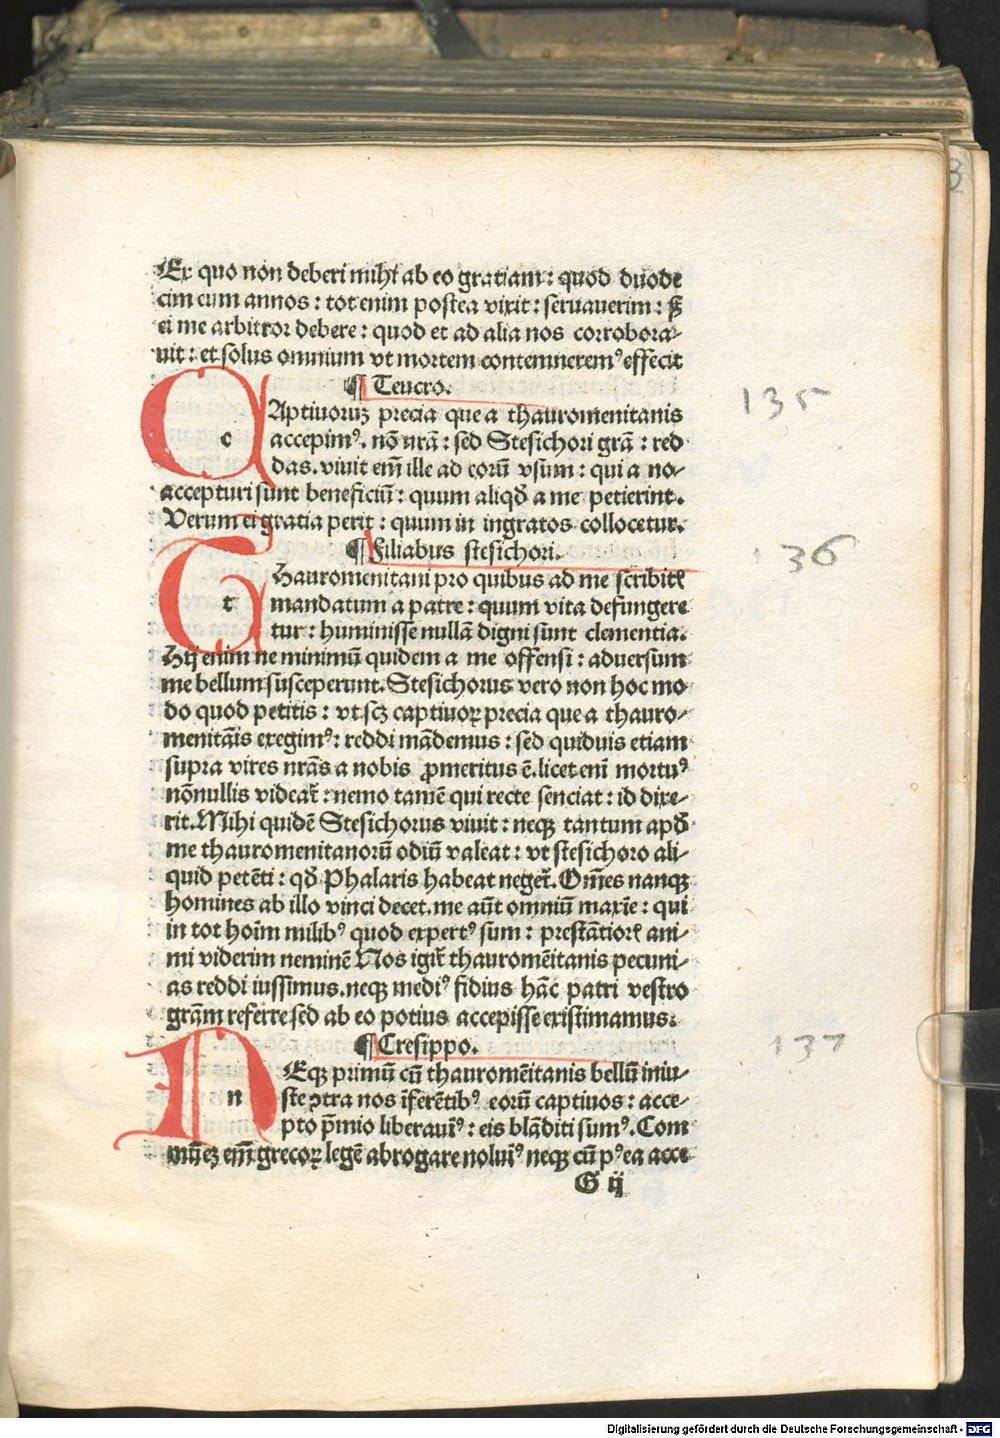 Ex quo non deberi mihi ab eo gratiam: quod duode
cim eum annos: tot enim postea vixit: seruauerim: s&
ei me arbitror debere: quod et ad alia nos corrobora-
uit: et solus omnium vt mortem contemnerem⁹ effecit
¶ Teucro.
CAptiuoruꝫ precia que a thauromenitanis
accepim⁹. nō nrā: sed Stesichori grā: red
das. viuit em̄ ille ad eorū vsum: qui a no-
accepturi sunt beneficiū: quum aliqđ a me petierint.
Verum ei gratia perit: quum in ingratos collocetur.
¶ Filiabus stesichori.
THauromenitani pro quibus ad me scribitꝭ
mandatum a patre: quum vita defungere
tur: huminisse nullā digni sunt clementia.
Hij enim ne minimū quidem a me offensi: aduersum
me bellum susceperunt. Stesichorus vero non hoc mo
do quod petitis: vt scꝫ captiuoꝝ precia que a thauro-
menitāis exegim⁹: reddi mādemus: sed quiduis etiam
supra vires nrās a nobis ꝓmeritus ē. licet eni mortu⁹
nōnullis videat̄: nemo tamē qui recte senciat: id dixe-
rit. Mihi quidē Stesichorus viuit: neqꝫ tantum apđ
me thauromenitanorū odiū valeat: vt stesichoro ali-
quid petēti: qđ Phalaris habeat neget̄. Om̄es nanqꝫ
homines ab illo vinci decet. me aūt omniū maxīe: qui
in tot hoīm milib⁹ quod expert⁹ sum: prestātiorꝭ ani-
mi viderim neminē Nos igit̄ thauromēitanis pecuni-
as reddi iussimus. neqꝫ medi⁹ fidius hāc patri vestro
grām referre sed ab eo potius accepisse existimamus.
¶ Cresippo.
NEqꝫ primū cū thauromēitanis bellū iniu-
ste ꝯtra nos īferētib⁹ eorū captiuos: acce-
pto p̄mio liberauī⁹: eis blāditi sum⁹. Com
mūeꝫ em̄ grecoꝝ legē abrogare noluī⁹ neqꝫ cū p⁹ea acce
G ij
135
136
137
Digitalisierung gefördert durch die Deutsche Forschungsgemeinschaft - DFG